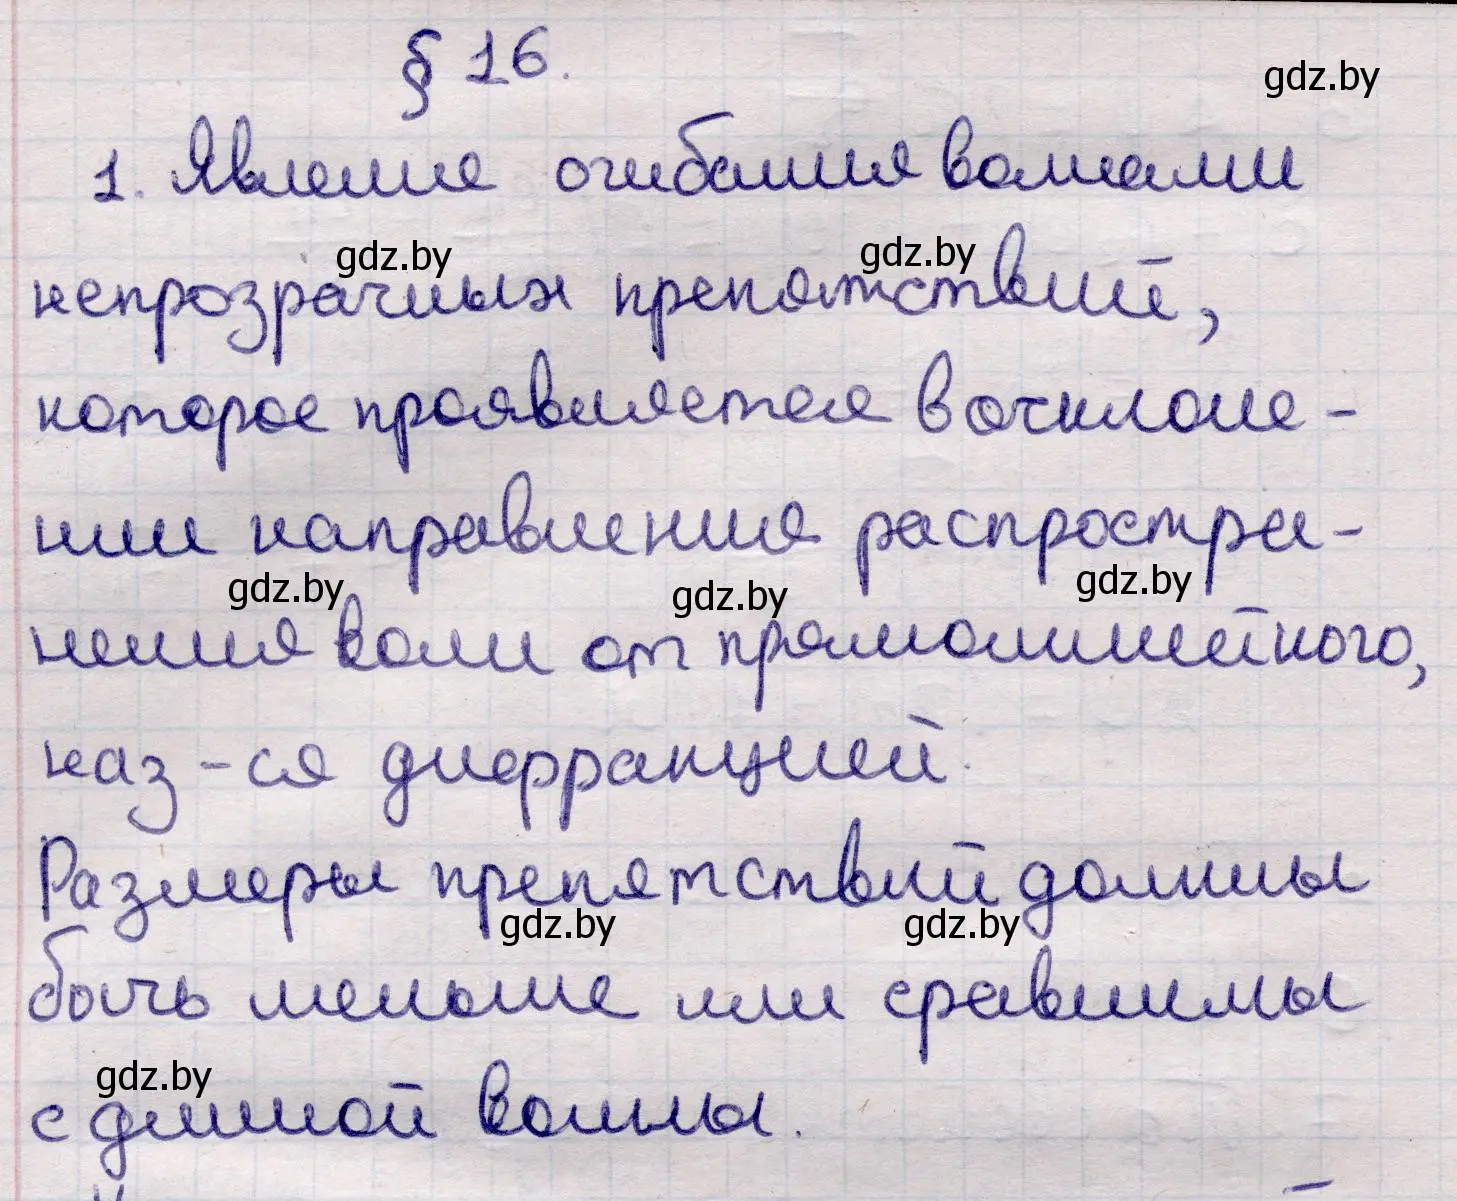 § 16.
gdz.by
1. Явление огибания волнами
gdz.by gdz.by
непрозрачных препятствий,
которое проявляется в отклоне-
нии направления распростра-
gdz.by gdz.by gdz.by
нения волн от прямолинейного,
наз-ся дифракцией.
Размеры препятствий должны
gdz.by gdz.by
быть меньше или сравнимы
gdz.by
с длиной волны.